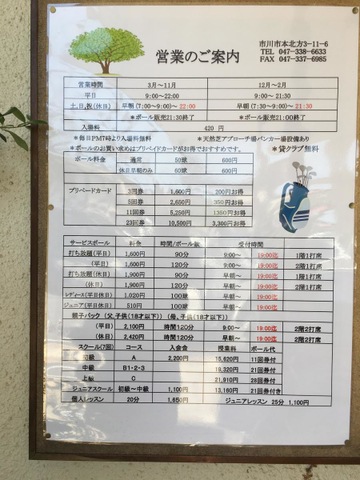 営業のご案内
市川市本北方3-11-6
TEL 047-338-6633
FAX 047-337-6985
営業時間 3月〜11月 12月〜2月
平日 9:00〜22:00 9:00〜21:30
土,日,祝(休日) 早朝(7:00〜9:00)〜22:00 早朝(7:30〜9:00)〜21:30
*ボール販売21:30終了 *ボール販売21:00終了
入場料 420 円
*毎日PM7時より入場料無料 *天然芝アプローチ場バンカー場設備あり
*ボールのお買い求めはプリペイドカードがお得でおすすめです。 *貸クラブ無料
ボール料金 通常 50球 600円
休日早朝のみ 60球 600円
プリペードカード 3回券 1,600円 200円お得
5回券 2,650円 350円お得
11回券 5,250円 1350円お得
23回券 10,500円 3,300円お得
サービスボール 料金 時間/ボール数 受付時間
打ち放題(平日) 1,600円 90分 9:00〜 19:00迄 1階1打席
(平日) 1,600円 120分 9:00〜 19:00迄 2階2打席
打ち放題(休日) 1,900円 90分 早朝〜 19:00迄 1階1打席
(休日) 1,900円 120分 早朝〜 19:00迄 2階2打席
レディース(平日休日) 1,020円 100球 早朝〜 19:00迄
ジュニア(平日休日) 510円 100球 早朝〜 19:00迄
親子パック (父、子供(18才以下)) (母、子供(18才以下))
(平日) 2,100円 時間120分 9:00〜 19:00迄 2階2打席
(休日) 2,420円 時間120分 早朝〜 19:00迄 2階2打席
スクール(7回) コース 入会金 授業料 ボール代
初級 A 2,200円 15,620円 11回券付
中級 B1-2-3 19,320円 21回券付
上級 C 21,910円 28回券付
ジュニアスクール 初級〜中級 1,100円 13,160円 21回券付き
個人レッスン 20分 1,650円 ジュニアレッスン 25分 1,100円